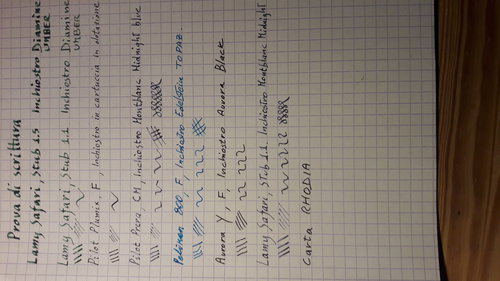 Prova di scrittura
Lamy Safari, Stub 1.5 Inchiostro Diamine
UMBER
Lamy Safari, Stub 1.1 Inchiostro Diamine
UMBER
Pilot Plumix, F, Inchiostro in cartuccia in dotazione
Pilot Prera, CM, Inchiostro Montblanc Midnight blue
Pelikan 800, F, Inchiostro Edelstein TOPAZ.
Aurora Y, F, Inchiostro Aurora Black
Lamy Safari, STub 1.1. Inchiostro Montblanc Midnight
Carta RHODIA